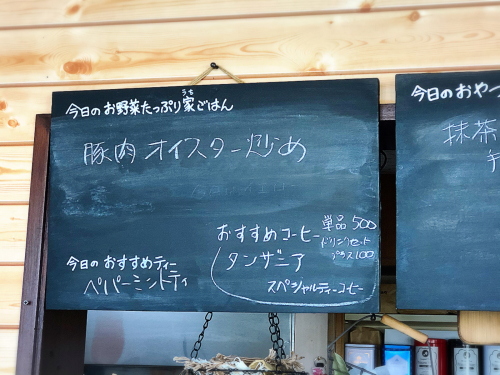 今日のお野菜たっぷり家ごはん
うち
豚肉 オイスター炒め
おすすめコーヒー
タンザニア
単品 500
ドリンクセット
プラス100
スペシャルティーコーヒー
今日のおすすめティー
ペパーミントティ
今日のおやつ
抹茶